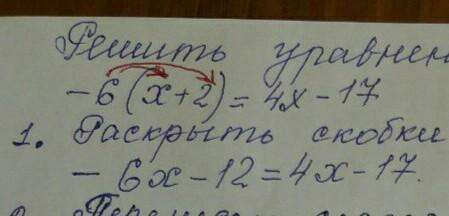 Решить уравнен
-6(x+2)=4x-17
1. Раскрыть скобки
- 6x-12=4x-17.